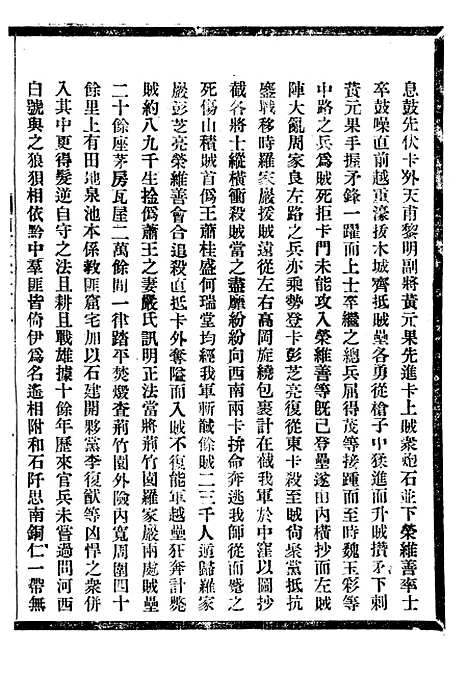 息鼓先伏卡外天甫黎明副將黃元果先進卡上賊衆炮石並下榮維善率士
卒鼓噪直前越重濠拔木城齊抵賊壘各勇從槍子中猱進而升賊攢矛下刺
黃元果手握矛鋒一躍而上士卒繼之總兵屈得茂等接踵而至時魏玉彩等
中路之兵爲賊死拒卡門未能攻入榮維善等旣已登壘遂由內橫抄而左賊
陣大亂周家良左路之兵亦乘勢登卡彭芝亮復從東卡殺至賊尙聚黨抵抗
鏖戰移時羅家嚴援賊遠從左右高岡旋繞包裹計在截我軍於中窪以圖抄
截各將士縱橫衝殺賊當之盡靡紛紛向西南兩卡拚命奔逃我師從而蹙之
死傷山積賊首僞王蕭桂盛何瑞堂均經我軍斬馘餘賊二三千人遁歸羅家
嚴彭芝亮榮維善會合追殺直抵卡外奪隘而入賊不復能軍越壘狂奔計斃
賊約八九千生擒僞蕭王之妻嚴氏訊明正法當將荊竹園羅家嚴兩處賊壘
二十餘座茅房瓦屋二萬餘間一律踏平焚燬查荊竹園外險內寬周圍四十
餘里上有田地泉池本係敎匪窟宅加以石建開夥黨李復猷等凶悍之衆併
入其中更得髮逆自守之法且耕且戰雄據十餘年歷來官兵未嘗過問河西
白號與之狼狽相依黔中羣匪皆倚伊爲名遙相附和石阡思南銅仁一帶無